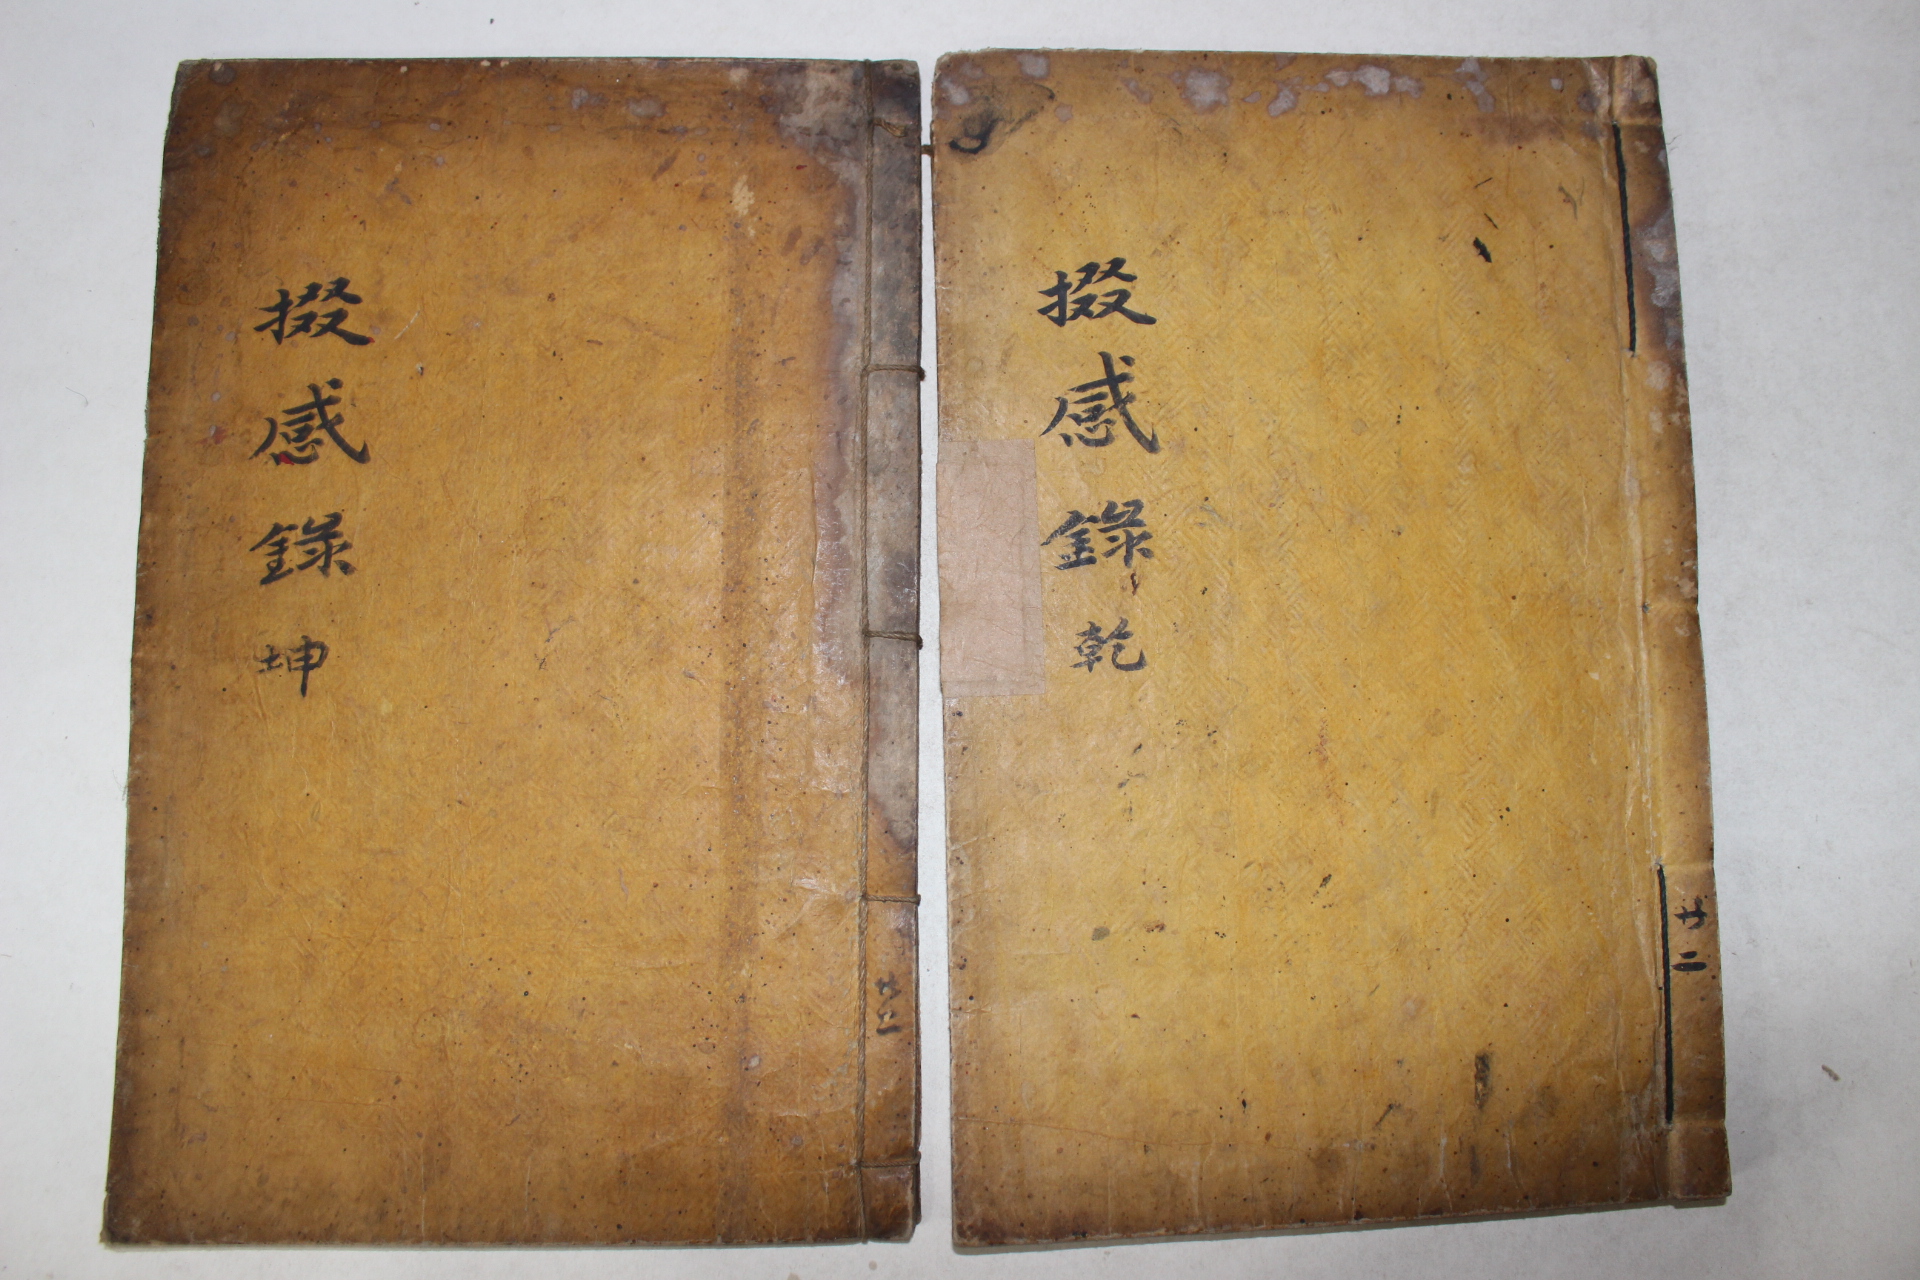 掇感錄 乾
廿二
掇感錄 坤
廿二